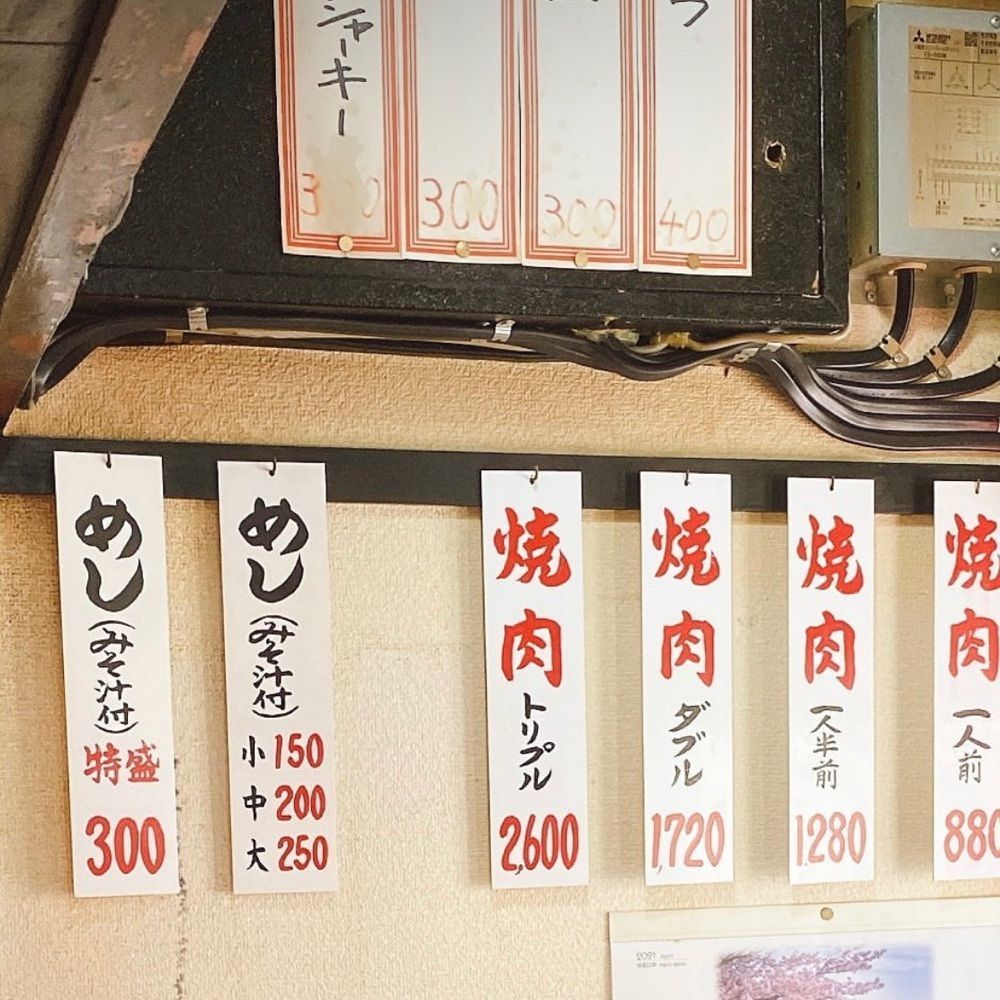 シャーキー
300
300
400
めし
(みそ汁付)
特盛
300
めし
(みそ汁付)
小 150
中 200
大 250
焼肉
トリプル
2,600
焼肉
ダブル
1,720
焼肉
一人半前
1,280
焼肉
一人前
880
2021